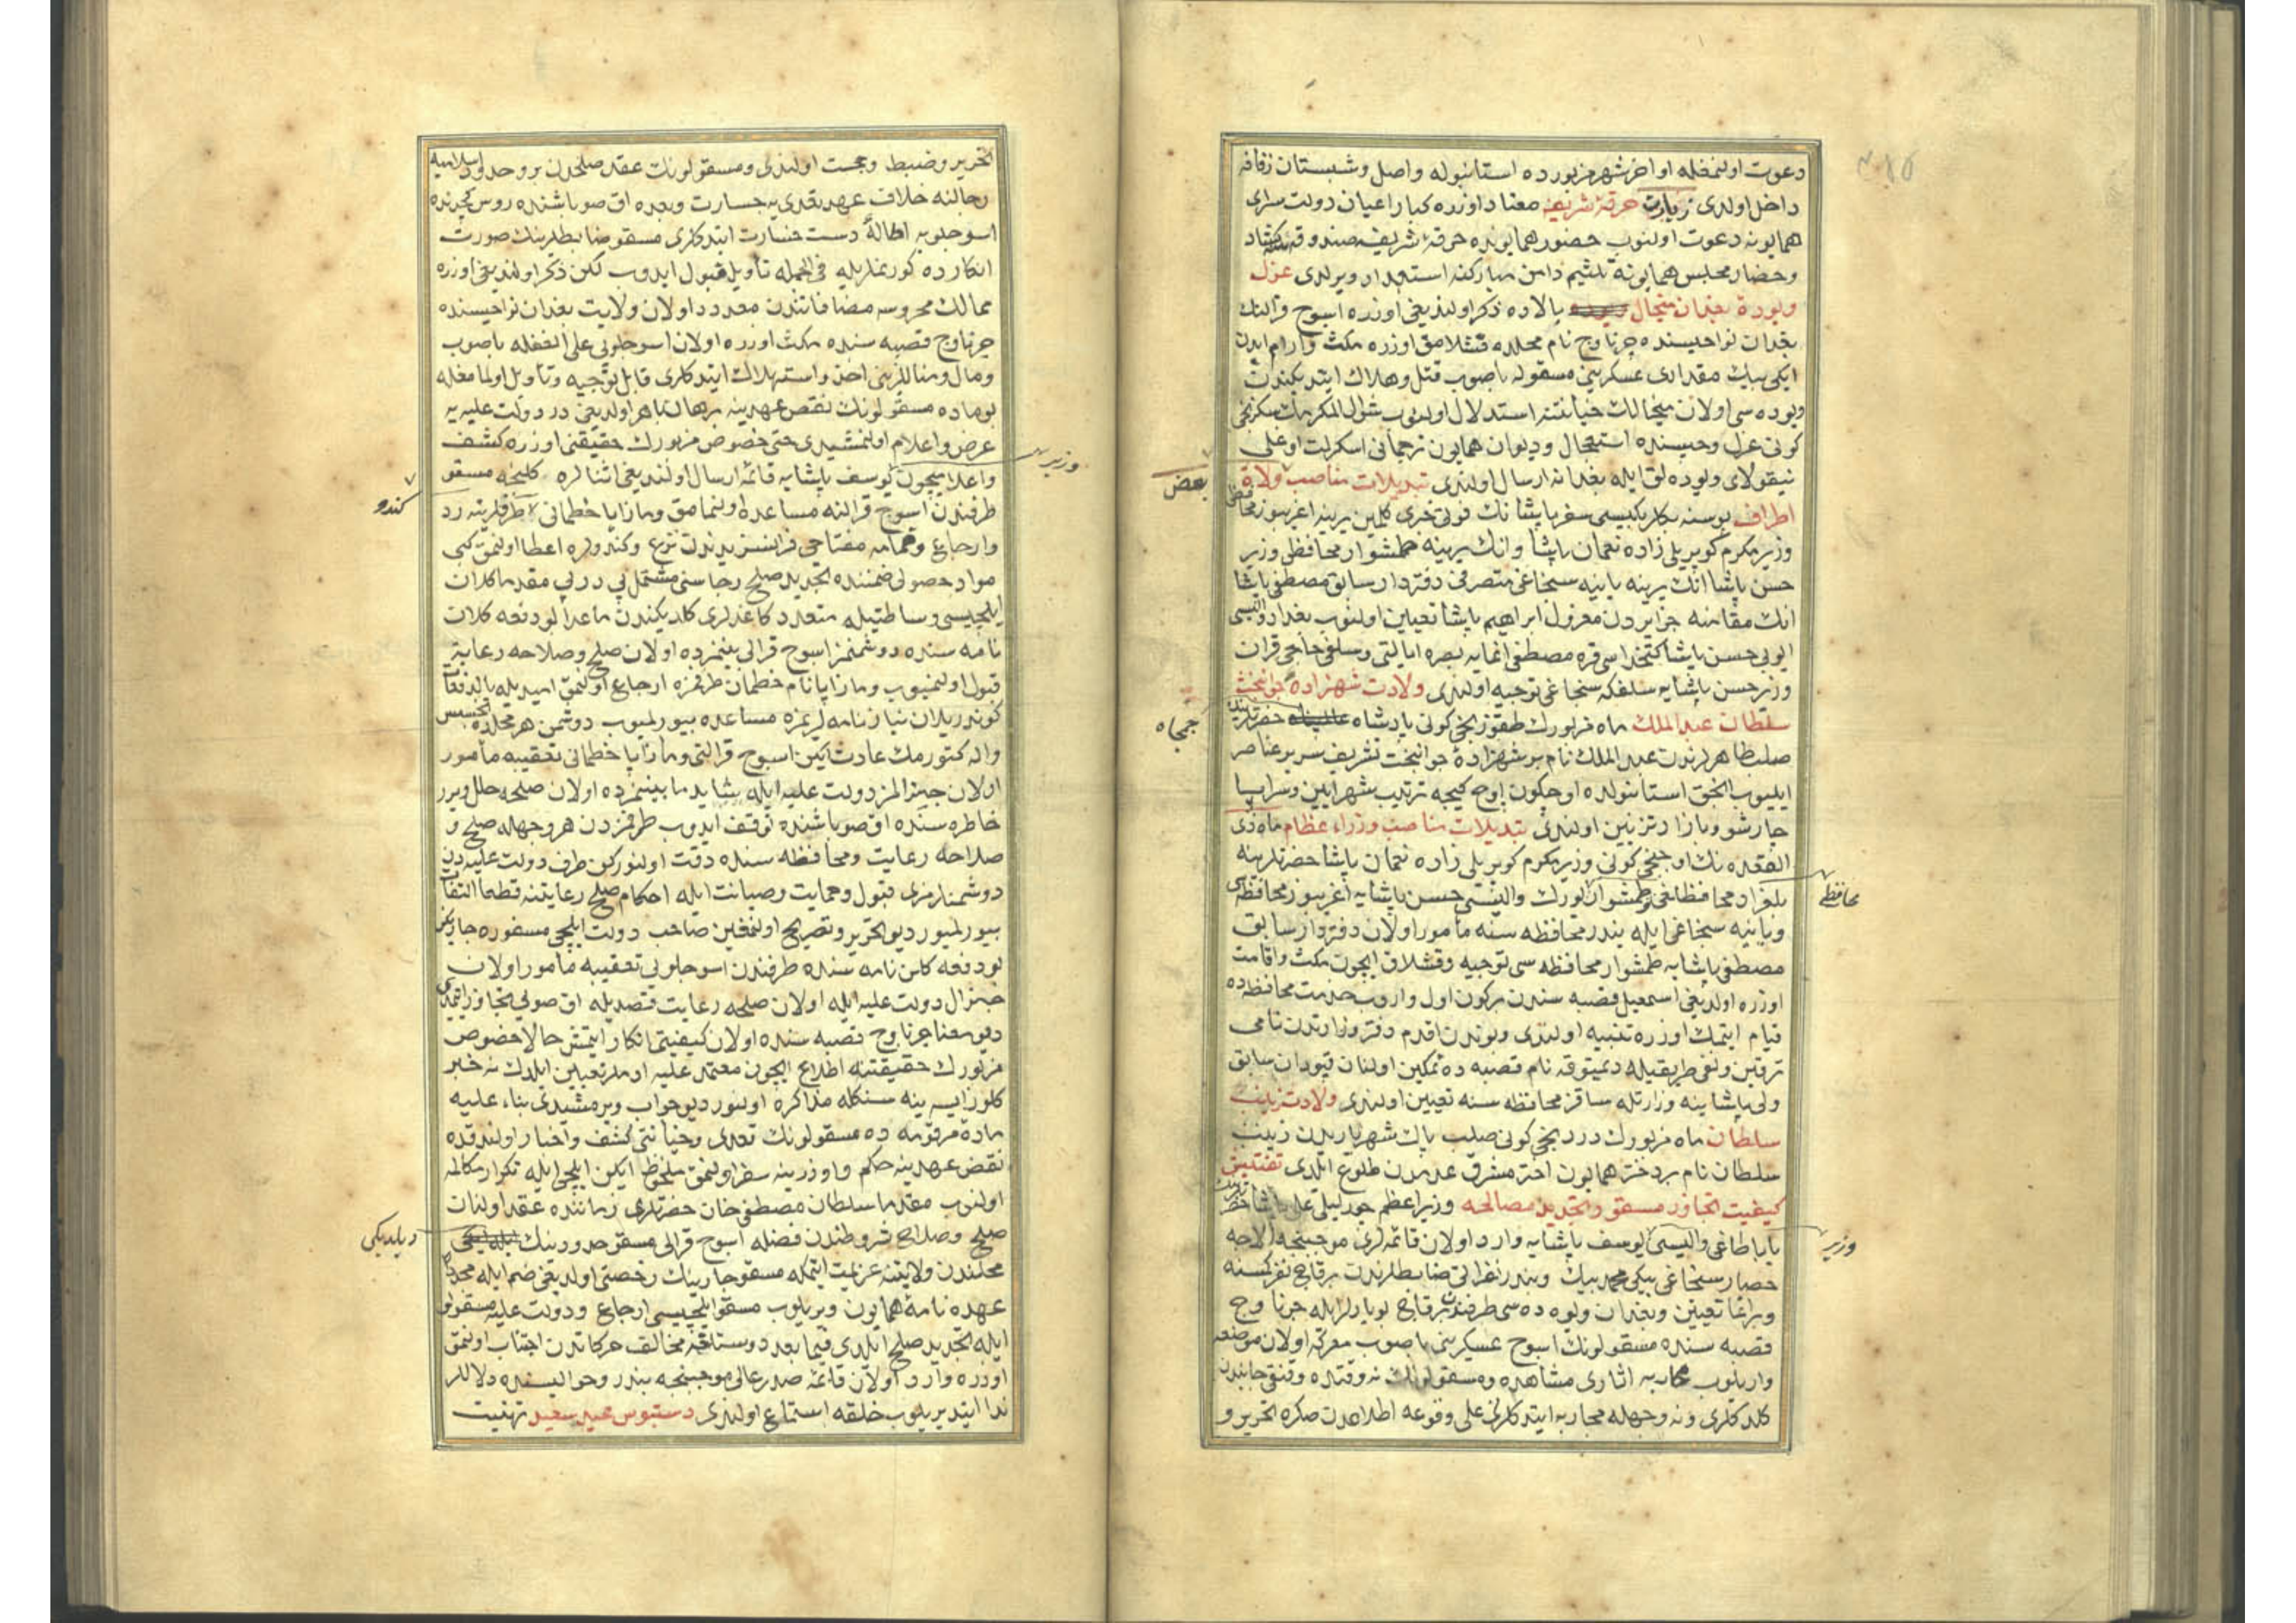 دعوت اولنمغله اواخر شهر مزبورده استانبوله واصل وشبستان زفافه
داخل اولدی زیارت خرقهٔ شریفه معتاد اوزره کبار اعیان دولت سرای
همایونه دعوت اولنوب حضور همایونده خرقهٔ شریفه صندوقه سی کشاد
وحضار مجلس همایونه تلثیم دامن مبارکنه استعداد ویرلدی عزل
ویودهٔ بغدان میخال بالاده ذکر اولندیغی اوزره اسوج قرالنك
بغدان نواحیسنده چرناوج نام محلده قشلامق اوزره مکث وارام ایدن
ایکی بیك مقداری عسکرینی مسقولر باصوب قتل وهلاك ایتدیکندن
ویوده سی اولان میخالك خیانتنه استدلال اولنوب شوال المکرمك سکزنجی
کونی عزل وحبسنده استعجال ودیوان همایون ترجمانی اسکرلت اوغلی
نیقولای ویوده لق ایله بغدانه ارسال اولندی تبدیلات مناصب ولاة
بعض
اطراف بوسنه بکلربکیسی سفر پاشانك فوتی خبری کلمکین یرینه اغریبوز محافظی
وزیر مکرم کوپریلی زاده نعمان پاشا وانك یرینه طمشوار محافظی وزیر
حسن پاشا انك یرینه یانیه سنجاغی متصرفی دفتردار سابق مصطفی پاشا
انك مقامنه جزایردن معزول ابراهیم پاشا تعیین اولنوب بغداد والیسی
ایوبی حسن پاشا کتخداسی قره مصطفی اغایه بصره ایالتی وسلفی حاجی قران
وزیر حسن پاشایه سلفکه سنجاغی توجیه اولندی ولادت شهزادهٔ جوانبخت
سلطان عبد الملك ماه مزبورك طقوزنجی کونی پادشاه حضرتلرینك
جمجاه
صلب طاهرلرندن عبد الملك نام بر شهزادهٔ جوانبخت تشریف سریر عناصر
ایلیوب الحق استانبولده اوچ کون اوچ کیجه ترتیب شهرایین وسراپا
چارشو وبازار تزیین اولندی تبدیلات مناصب وزراء عظام ماه ذی
القعده نك اوچنجی کونی وزیر مکرم کوپریلی زاده نعمان پاشا حضرتلرینه
بلغراد محافظلغی وطمشوارلورك والیسی حسن پاشایه اغریبوز محافظه سی
محافظی
ویانیه سنجاغی ایله بندر محافظه سنه مأمور اولان دفتردار سابق
مصطفی پاشایه طمشوار محافظه سی توجیه وقشلاق ایچون مکث واقامت
اوزره اولدیغی اسمعیل قصبه سندن برکون اول واروب خدمت محافظه ده
قیام ایتمك اوزره تنبیه اولندی وبوندن اقدم دفتر وزارتدن نامی
ترقین ونفی طریقیله دیمتوقه نام قصبه ده تمکین اولنان قپودان سابق
ولی پاشا ینه وزارتله ساقز محافظه سنه تعیین اولندی ولادت زینب
سلطان ماه مزبورك دردنجی کونی صلب پاك شهریاریدن زینب
سلطان نام بر دختر همایون اختر مشرق عدمدن طلوع ایلدی تفتیش
کیفیت تجاوز مسقو وتجدید مصالحه وزیر اعظم چورلیلی علی پاشا حضرتلرندن
باباطاغی والیسی یوسف پاشایه وارد اولان قائمه لری موجبنجه الاجه
وزیر
حصار سنجاغی بیکی محمد بیك وبندر نفراتی ضابطلرندن برقاچ نفر کمسنه
وبراغا تعیین وبغدان ویوده سی طرفندن برقاچ بویارلر ایله چرناوج
قصبه سنده مسقولونك اسوج عسکرینی باصوب معرکه اولان موضعه
واریلوب محاربه اثاری مشاهده ومسقولونك نه وقتده وقنقی جانبدن
کلدکلری ونه وجهله محاربه ایتدکلرینی علی وقوعه اطلاعدن صکره تحریر و
تحریر وضبط وحجت اولندی ومسقولونك عقد صلحدن برو حدود اسلامیه
رجالنه خلاف عهد تعدی یه جسارت وبعده اق صو باشنده روس کچیدنده
اسوجلویه اطالهٔ دست خسارت ایتدکلری مسقو ضابطلرینك صورت
انکارده کورنملریله فی الجمله تأویل قبول ایدوب لکن ذکر اولندیغی اوزره
ممالك محروسه مضافاتندن معدود اولان ولایت بغدان نواحیسنده
چرناوج قصبه سنده مکث اوزره اولان اسوجلویی علی الغفله باصوب
ومال ومناللرینی اخذ واستهلاك ایتدکلری قابل توجیه وتأویل اولمامغله
بو ماده مسقولونك نقض عهدینه برهان باهر اولدیغی در دولت علیه یه
عرض واعلام اولنمشیدی حتی خصوص مزبورك حقیقتی اوزره کشف
واعلامیچون یوسف پاشایه قائمه ارسال اولندیغی اثنالره کلینجه مسقو
وزیر
طرفندن اسوج قرالنه مساعده اولنمامق ومازاپا خطمانی طرفلرینه رد
کندو
وارجاع وقمامه مفتاحی فرانسز یدندن نزع وکندولره اعطا اولنمق کبی
مواد حصولی ضمننده تجدید صلح رجاسنی مشتمل پی در پی مقدما کلان
ایلچیسی وساطتیله متعدد کاغدلری کلدیکندن ماعدا بو دفعه کلان
نامه سنده دوشمنمز اسوج قرالی بینمزده اولان صلح وصلاحه رعایة
قبول اولنمیوب ومازاپا نام خطمان طرفمزه ارجاع اولنمق امیدیله بالدفعات
کوندریلان نیازنامه لریمزه مساعده بیورلمیوب دوشمن هر محلده تجسس
والده کتورمك عادت ایکن اسوج قرالنی ومازاپا خطمانی تعقیبه مأمور
اولان جنرالمز دولت علیه ایله شاید مابینمزده اولان صلحه خلل ویرر
خاطره سنده اق صو باشنده توقف ایدوب طرفمزدن هر وجهله صلح و
صلاحه رعایت ومحافظه سنده دقت اولنورکن طرف دولت علیه دن
دوشمنلرمزی قبول وحمایت وصیانت ایله احکام صلح رعایتنه قطعا التفات
بیورلمیور دیو تحریر وتصریح اولنمغین صاحب دولت ایلچی مسفوره چاریکز
بو دفعه کلن نامه سنده طرفندن اسوجلویی تعقیبه مأمور اولان
جنرال دولت علیه ایله اولان صلحه رعایت قصدیله اق صویی تجاوز ایتمدی
دیو معنا چرناوج قصبه سنده اولان کیفیتی انکار ایتمش حالا خصوص
مزبورك حقیقتنه اطلاع ایچون معتمد علیه اوملر تعیین ایلدك نه خبر
کلورایسه ینه سنکله مذاکره اولنور دیو جواب ویرمشیدی بناء علیه
مادهٔ مرقومه ده مسقولونك تعدی وخیانتی کشف واخبار اولندقده
نقض عهدینه حکم واوزرینه سفر اولنمق ملحوظ ایکن ایلچی ایله تکرار مکالمه
اولنوب مقدما سلطان مصطفی خان حضرتلری زماننده عقد اولنان
صلح وصلاح شروطندن فضله اسوج قرالی مسقو حدودینك
دیلدیکی
محلندن ولایتنه عزیمت ایتمکه مسقو چارینك رخصتی اولدیغی ضم ایله مجددا
عهده نامهٔ همایون ویریلوب مسقو ایلچیسی ارجاع ودولت علیه مسقولو
ایله تجدید صلح ایلدی فیما بعد دوستلغه مخالف حرکاتدن اجتناب اولنمق
اوزره وارد اولان قائمه صدر عالی موجبنجه بندر وحوالیسنده دلاللر
ندا ایتدیریلوب خلقه استماع اولندی دستبوس عید سعید تهنیت